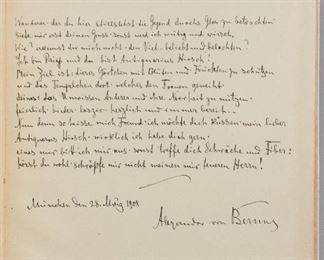 Wanderer der du hier stillstehst die Gegend durchs Glas zu betrachten
siehe mir erst deinen Gruss sonst werd ich wütig und
Wie? erkennst du mich nicht den Viel-beliebt und belachten?
Ich bin und bin Antiquarius Hirsch!
Mein Ziel ist: dieses Gärtchen mit Blüten und Früchten zu schützen
und das Tempelchen dort welches den Frauen geweiht
dem der
feierlich bieder herzlich und immer bereit.
Nun denn so heisse mich Freund ich möchte dich küssen mein lieber
Antiquarius Hirsch wirklich ich habe dich gern
eines nur bitt ich mir aus sonst treffe dich Schwäche und Fieber:
hörst du wohl schröpfe mir nicht meinen mir teueren Herrn!
München den 28. März 1908
Alexander von Bernus